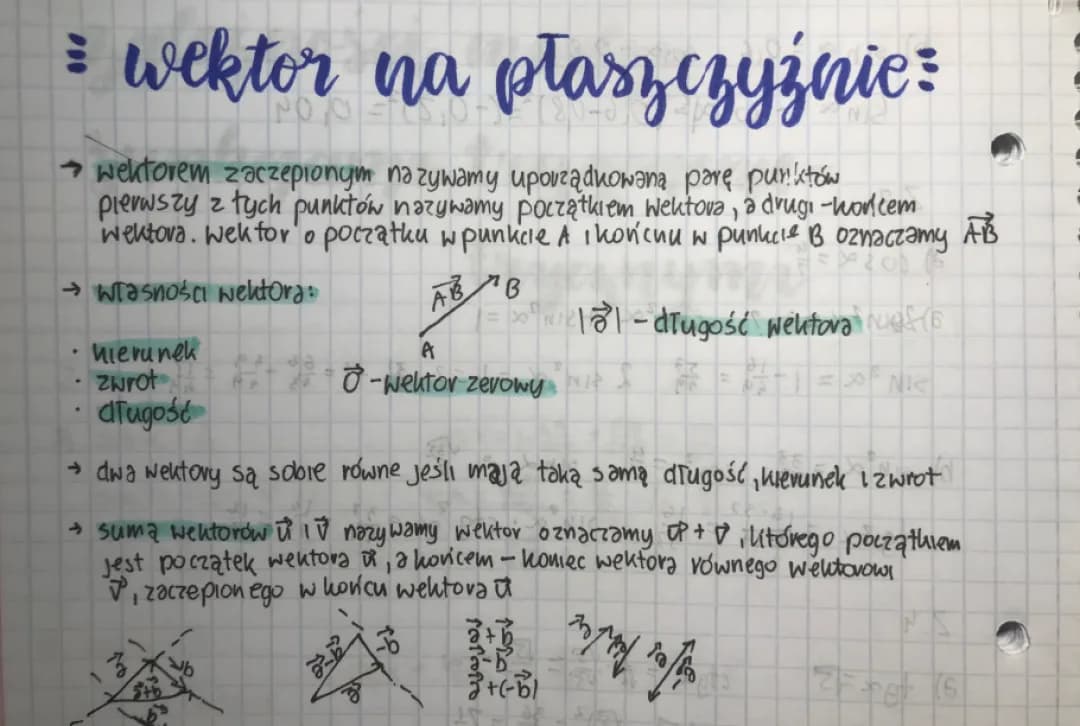 wektor na płaszczyźnie
→ wektorem zaczepionym nazywamy uporządkowaną parę punktów
pierwszy z tych punktów nazywamy początkiem wektora, a drugi - końcem
wektora. wektor o początku w punkcie A i końcu w punkcie B oznaczamy A⃗B⃗
→ własności wektora:
AB⃗ B
A
|a⃗| - długość wektora
· kierunek
· zwrot
· długość
0⃗ - wektor zerowy
→ dwa wektory są sobie równe jeśli mają taką samą długość, kierunek i zwrot
→ sumą wektorów u⃗ i v⃗ nazywamy wektor oznaczamy u⃗ + v⃗, którego początkiem
jest początek wektora u⃗, a końcem - koniec wektora równego wektorowi
v⃗, zaczepionego w końcu wektora u⃗
a⃗ b⃗
a⃗+b⃗
b⃗
a⃗-b⃗ -b⃗
a⃗
a⃗+b⃗
a⃗-b⃗
a⃗+(-b⃗)